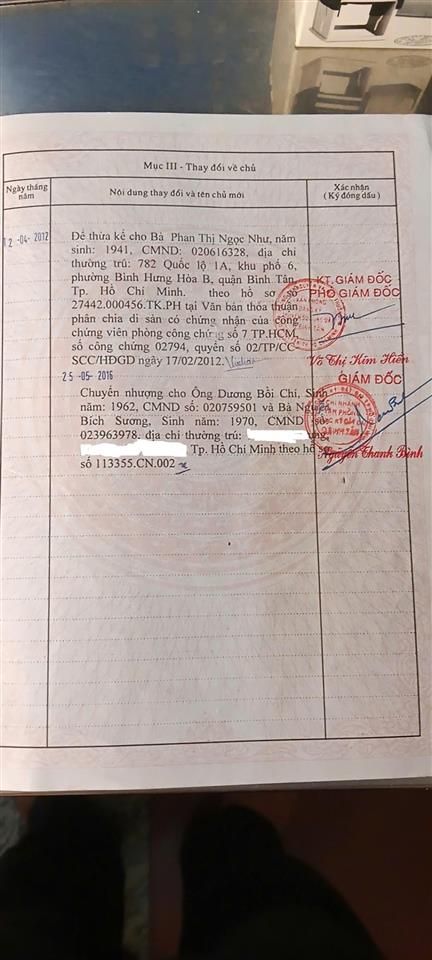 Mục III - Thay đổi về chủ
Ngày tháng năm
Nội dung thay đổi và tên chủ mới
Xác nhận
( Ký đóng dấu )
12 -04- 2012
Để thừa kế cho Bà Phan Thị Ngọc Như, năm
sinh: 1941, CMND: 020616328, địa chỉ
thường trú: 782 Quốc lộ 1A, khu phố 6,
phường Bình Hưng Hòa B, quận Bình Tân,
Tp. Hồ Chí Minh. theo hồ sơ số
27442.000456.TK.PH tại Văn bản thỏa thuận
phân chia di sản có chứng nhận của công
chứng viên phòng công chứng số 7 TP.HCM,
số công chứng 02794, quyển số 02/TP/CC-
SCC/HĐGD ngày 17/02/2012.
KT.GIÁM ĐỐC
PHÓ GIÁM ĐỐC
Võ Thị Kim Hiên
25 -05- 2016
Chuyển nhượng cho Ông Dương Bồi Chí, Sinh
năm: 1962, CMND số: 020759501 và Bà Nguyễn
Bích Sương, Sinh năm: 1970, CMND số:
023963978. địa chỉ thường trú:
Tp. Hồ Chí Minh theo hồ sơ
số 113355.CN.002
GIÁM ĐỐC
Nguyễn Thanh Bình